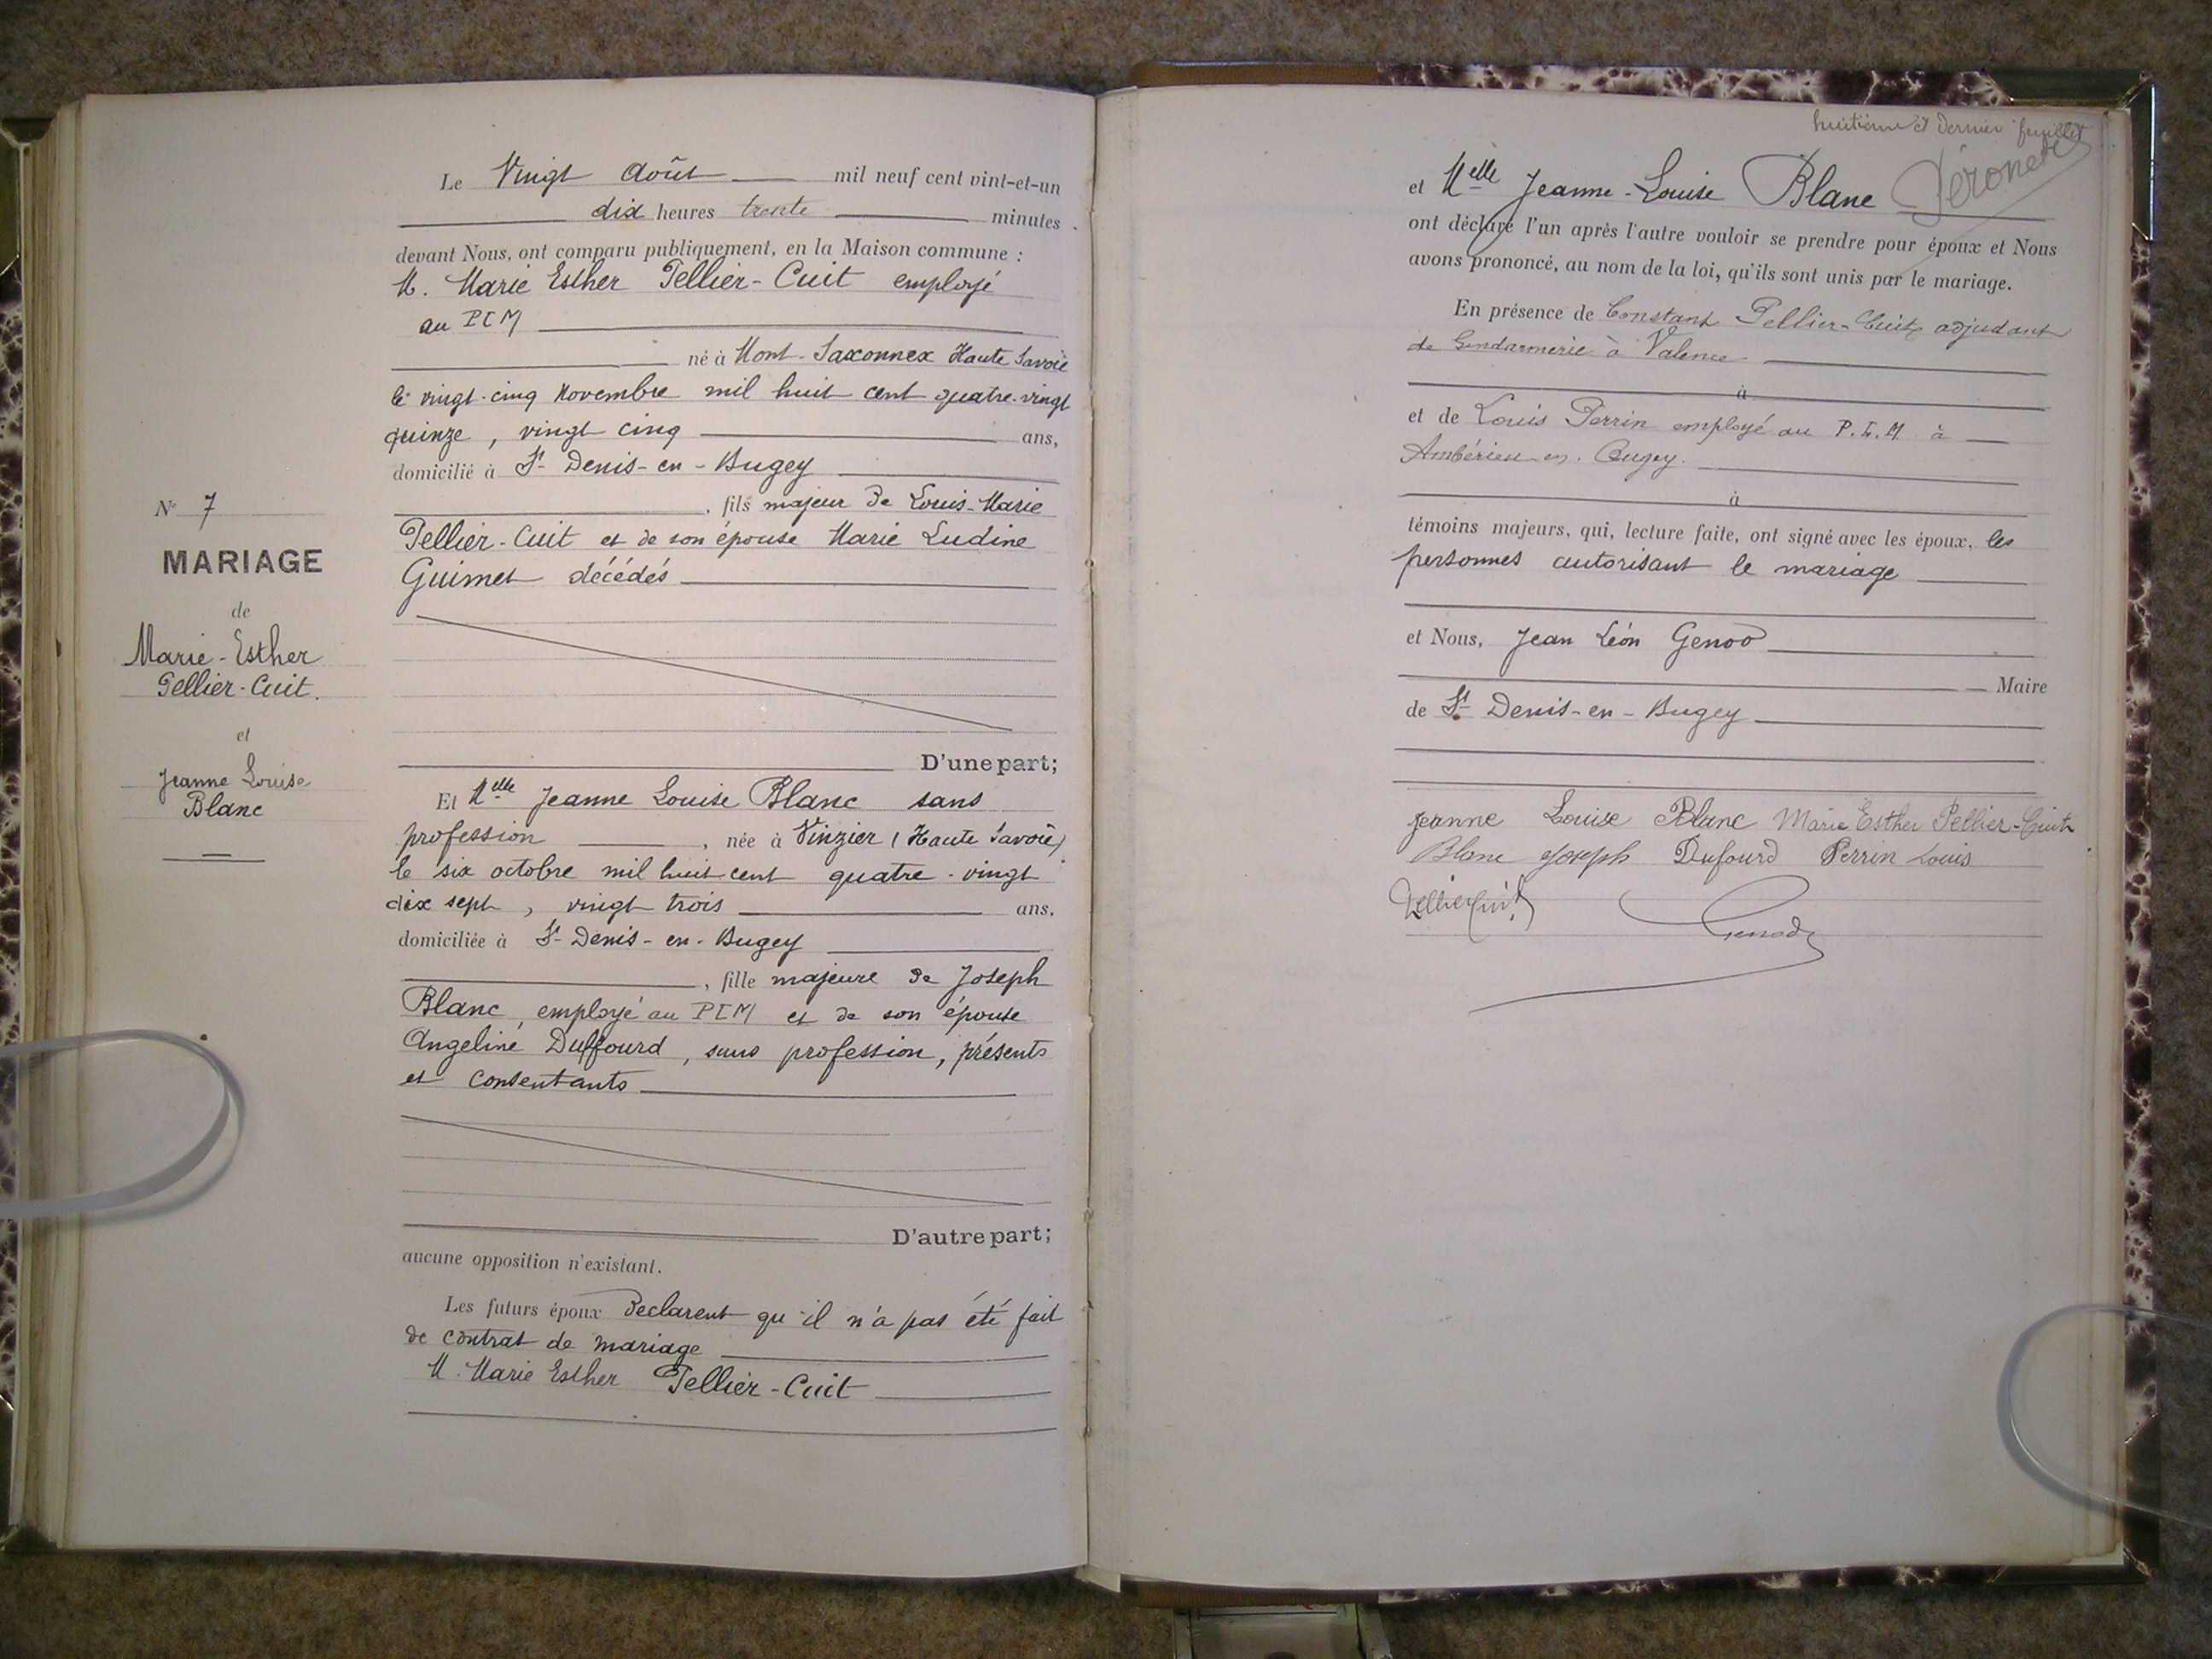 N° 7
MARIAGE
de
Marie-Esther
Pellier-Cuit.
et
Jeanne Louise
Blanc
Le Vingt Août mil neuf cent vint-et-un
dix heures trente minutes
devant Nous, ont comparu publiquement, en la Maison commune :
M. Marie Esther Pellier-Cuit employé
au PLM
né à Mont-Saxonnex Haute Savoie
le vingt-cinq Novembre mil huit cent quatre-vingt
quinze, vingt cinq ans,
domicilié à St Denis-en-Bugey
, fils majeur de Louis-Marie
Pellier-Cuit et de son épouse Marie Ludine
Guimet décédés
D'une part;
Et Melle Jeanne Louise Blanc sans
profession , née à Vinzier (Haute Savoie)
le six octobre mil huit cent quatre-vingt
dix sept, vingt trois ans,
domiciliée à St Denis-en-Bugey
, fille majeure de Joseph
Blanc, employé au PLM et de son épouse
Angeline Duffourd, sans profession, présents
et consentants
D'autre part;
aucune opposition n'existant.
Les futurs époux déclarent qu'il n'a pas été fait
de contrat de mariage
M. Marie Esther Pellier-Cuit
huitième et dernier feuillet
et Melle Jeanne-Louise Blanc
ont déclaré l'un après l'autre vouloir se prendre pour époux et Nous
avons prononcé, au nom de la loi, qu'ils sont unis par le mariage.
En présence de Constant Pellier-Cuit adjudant
de Gendarmerie à Valence
à
et de Louis Perrin employé au P.L.M. à
Ambérieu-en-Bugey.
à
témoins majeurs, qui, lecture faite, ont signé avec les époux, les
personnes autorisant le mariage
et Nous, Jean Léon Genod
Maire
de St Denis-en-Bugey
Jeanne Louise Blanc Marie Esther Pellier-Cuit
Blanc Joseph Dufourd Perrin Louis
Pelliercuit Genod